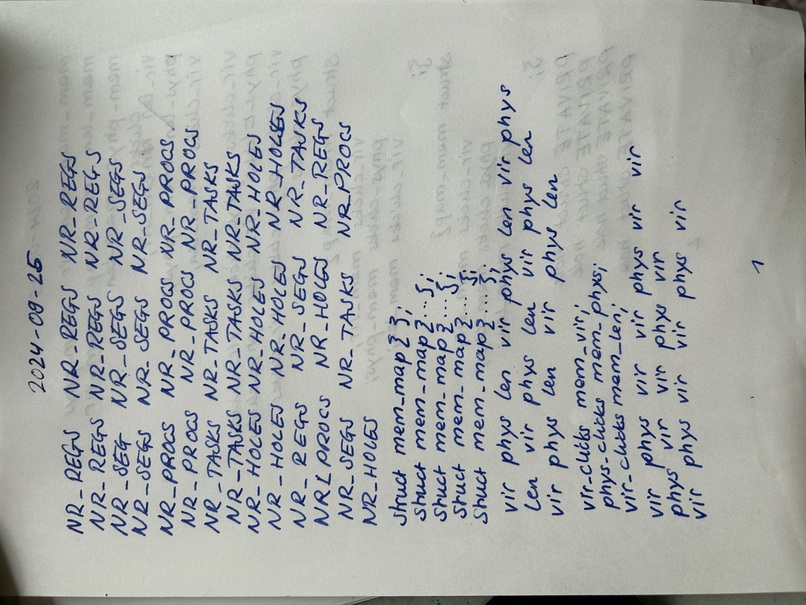 2024-08-25
NR_REGS NR_REGS NR_REGS
NR_REGS NR_REGS NR_REGS
NR_SEG NR_SEGS NR_SEGS
NR_SEGS NR_SEGS NR_SEGS
NR_PROCS NR_PROCS NR_PROCS
NR_PROCS NR_PROCS NR_PROCS
NR_TASKS NR_TASKS NR_TASKS
NR_TASKS NR_TASKS NR_TASKS
NR_HOLES NR_HOLES NR_HOLES
NR_HOLES NR_HOLES NR_HOLES
NR_REGS NR_SEGS NR_TASKS
NR_PROCS NR_HOLES NR_REGS
NR_SEGS NR_TASKS NR_PROCS
NR_HOLES
struct mem_map { };
struct mem_map { ... };
struct mem_map { ... };
struct mem_map { ... };
struct mem_map { ... };
vir phys len vir phys len vir phys
len vir phys len vir phys len
vir phys len vir phys len
vir_clicks mem_vir;
phys_clicks mem_phys;
vir_clicks mem_len;
vir phys vir phys vir phys vir vir
phys vir vir phys vir
vir phys vir vir phys vir
1